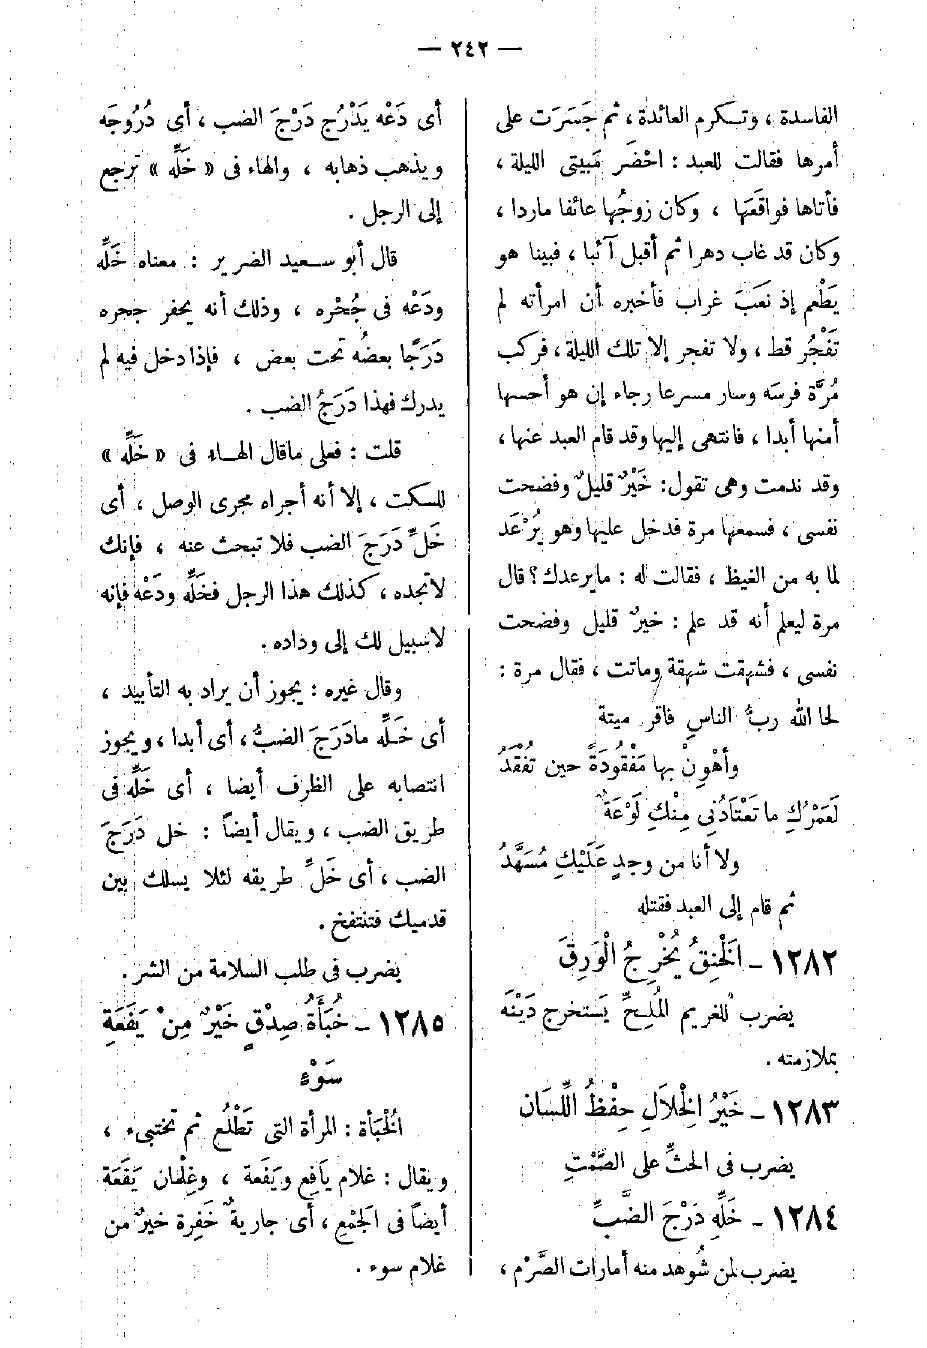 — ٢٤٢ —
الفاسدة ، وتكرم العائدة ، ثم جَسَرَت على
أمرها فقالت للعبد : احْضَر مَبيتى الليلة ،
فأتاها فواقَعَها ، وكان زوجُها عائفا ماردا ،
وكان قد غاب دهرا ثم أقبل آئبا ، فبينا هو
يَطْعم إذ نَعَبَ غراب فأخبره أن امرأته لم
تَفْجُر قط ، ولا تفجر إلا تلك الليلة ، فركب
مُرَّة فرسَه وسار مسرعا رجاء إن هو أحسها
أمنها أبدا ، فانتهى إليها وقد قام العبد عنها ،
وقد ندمت وهى تقول : خَيْرٌ قليلٌ وفضحت
نفسى ، فسمعها مرة فدخل عليها وهو يُرْعَد
لما به من الغيظ ، فقالت له : مايرعدك ؟ قال
مرة ليعلم أنه قد علم : خيرٌ قليل وفضحت
نفسى ، فشهقت شهقة وماتت ، فقال مرة :
لحا الله ربُّ الناسِ فاقر ميتة
وأهْوِنْ بها مَفْقُودَةً حين تُفْقَدُ
لَعَمْرُكِ ما تَعْتَادُنِى مِنْكِ لَوْعَةٌ
ولا أنا من وجدٍ عَلَيْكِ مُسَهَّدُ
ثم قام إلى العبد فقتله
١٢٨٢ – الْخَنِقُ يُخْرِجُ الْوَرِقَ
يضرب للغريم الْمُلِحِّ يَستخرج دَيْنَه
بملازمته .
١٢٨٣ – خَيْرُ الْخِلَالِ حِفْظُ اللِّسَان
يضرب فى الحثِّ على الصَّمْتِ
١٢٨٤ – خَلِّهِ دَرْجَ الضَّبِّ
يضرب لمن شُوهد منه أمارات الصَّرْم ،
أى دَعْه يَدْرُج دَرْجَ الضب ، أى دُرُوجَه
ويذهب ذهابه ، والهاء فى « خَلِّه » ترجع
إلى الرجل .
قال أبو سعيد الضرير : معناه خَلِّه
ودَعْه فى جُحْره ، وذلك أنه يحفر جحره
دَرَجًا بعضُه تحت بعض ، فإذا دخل فيه لم
يدرك فهذا دَرَجُ الضب .
قلت : فعلى ماقال الهاء فى « خَلِّه »
للسكت ، إلا أنه أجراه مجرى الوصل ، أى
خَلِّ دَرَجَ الضب فلا تبحث عنه ، فإنك
لاتجده ، كذلك هذا الرجل فخَلِّه ودَعْه فإنه
لاسبيل لك إلى وداده .
وقال غيره : يجوز أن يراد به التأبيد ،
أى خَلِّه مادَرَجَ الضبُّ ، أى أبدا ، ويجوز
انتصابه على الظرف أيضا ، أى خَلِّه فى
طريق الضب ، ويقال أيضاً : خل دَرَجَ
الضب ، أى خَلِّ طريقه لئلا يسلك بين
قدميك فتنتفخ .
يضرب فى طلب السلامة من الشر .
١٢٨٥ – خُبَأَةُ صِدْقٍ خَيْرٌ مِنْ يَفَعَةِ
سَوْءٍ
الْخُبَأة : المرأة التى تَطْلُع ثم تختبىء ،
ويقال : غلام يافِع ويَفَعة ، وغِلْمان يَفَعَة
أيضاً فى الجَمْعِ ، أى جاريةٌ خَفِرة خيرٌ من
غلام سوء .